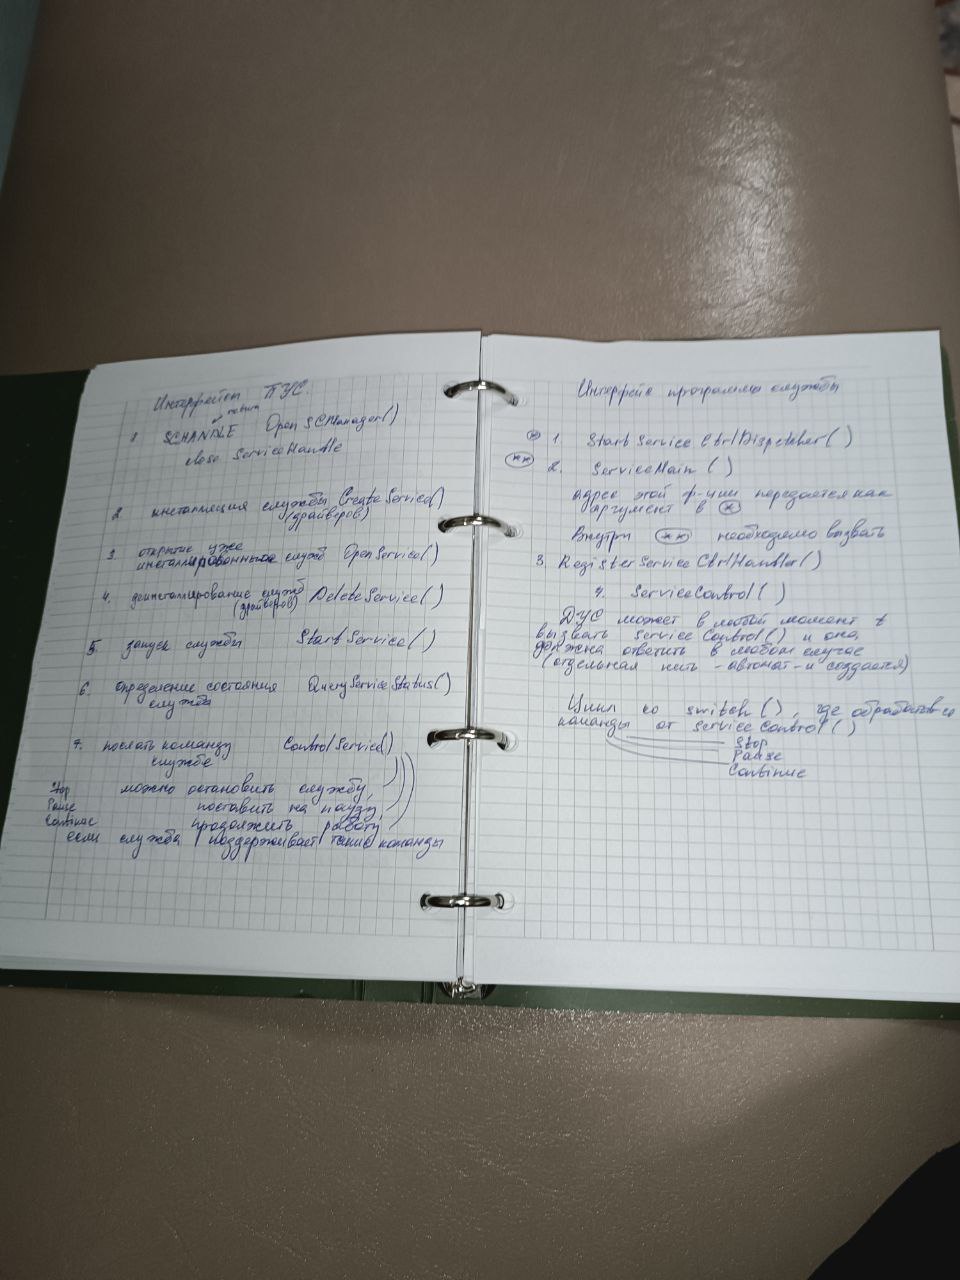 Интерфейсы ПУС.
return
1 SCHANDLE OpenSCManager()
close ServiceHandle
2 инсталляция службы CreateService()
(драйверов)
3. открытие уже
инсталлированных служб OpenService()
4. деинсталлирование служб DeleteService()
(драйверов)
5. запуск службы StartService()
6. определение состояния QueryServiceStatus()
службы
7. послать команду ControlService()
службе
Stop можно остановить службу,
Pause поставить на паузу,
Continue продолжить работу,
если служба поддерживает такие команды
Интерфейс программы службы
* 1. StartServiceCtrlDispetcher()
** 2. ServiceMain()
адрес этой ф-ции передается как
аргумент в *
Внутри ** необходимо вызвать
3. RegisterServiceCtrlHandler()
4. ServiceControl()
ДУС может в любой момент t
вызвать ServiceControl() и она
должна ответить в любом случае
(отдельная нить - автомат-и создается)
Цикл со switch(), где обработка
команды от ServiceControl()
Stop
Pause
Continue